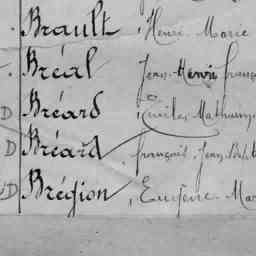 . Brault, Henri Marie
. Bréal Jean Henri franç
D Bréard Emile Mathurin
D Bréard, françois Jean Bapt
D Brégion, Eugène Mar